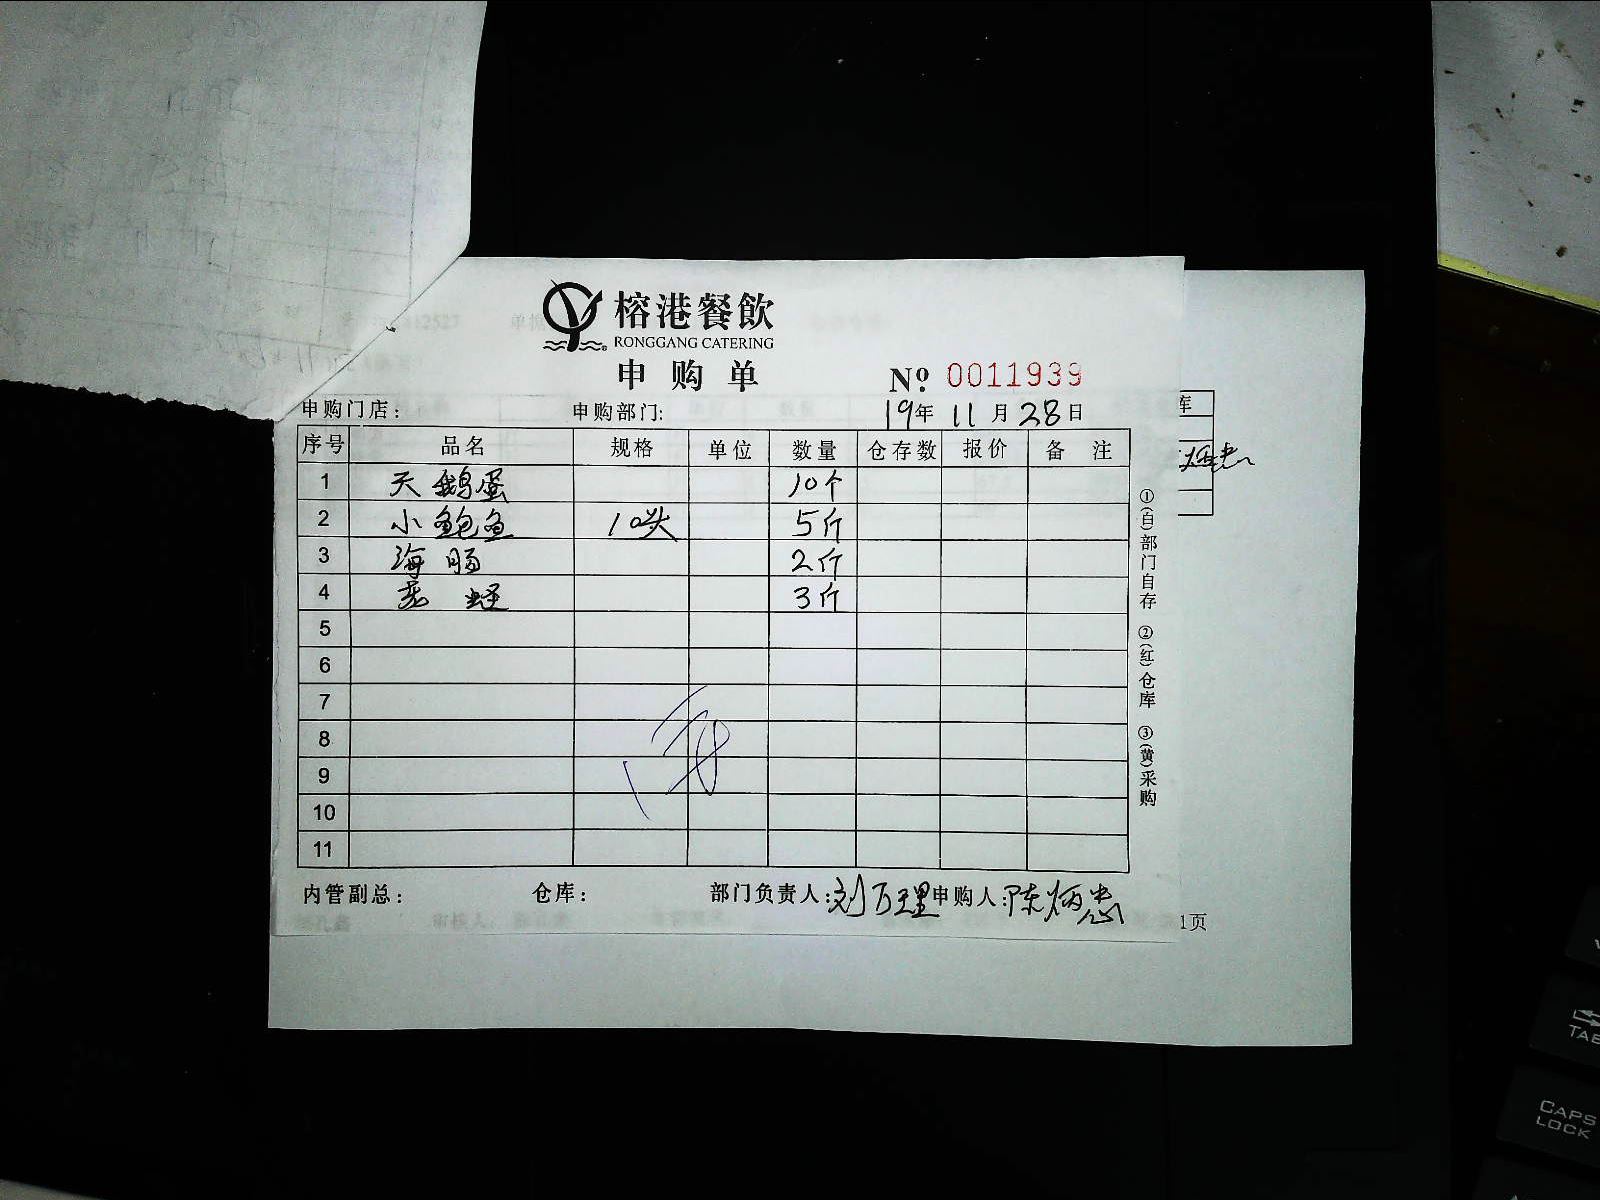 榕港餐飲
RONGGANG CATERING
申购单
№ 0011939
申购门店: 申购部门: 19年 11月 28日
序号 品名 规格 单位 数量 仓存数 报价 备注
1 天鹅蛋 10个
2 小鲍鱼 10头 5斤
3 海肠 2斤
4 3斤
5
6
7
8
9
10
11
①(白)部门自存 ②(红)仓库 ③(黄)采购
内管副总: 仓库: 部门负责人:刘万理 申购人:陈炳忠
库
1页
TAB
CAPS
LOCK